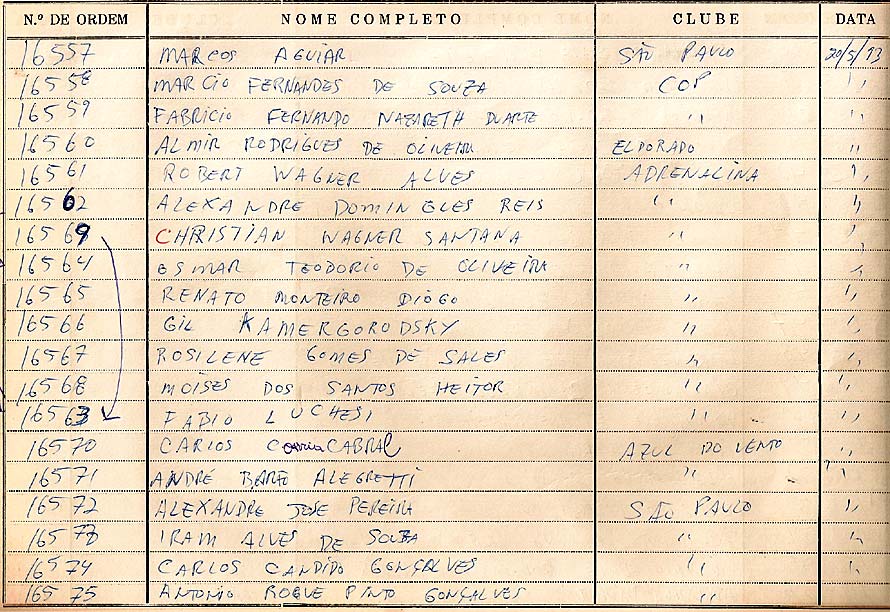 N.º DE ORDEM NOME COMPLETO CLUBE DATA
16557 MARCOS AGUIAR SÃO PAULO 20/5/93
16558 MARCIO FERNANDES DE SOUZA COP "
16559 FABRICIO FERNANDO NAZARETH DUARTE " "
16560 ALMIR RODRIGUES DE OLIVEIRA ELDORADO "
16561 ROBERT WAGNER ALVES ADRENALINA "
16562 ALEXANDRE DOMINGLES REIS " "
16569 CHRISTIAN WAGNER SANTANA " "
16564 OSMAR TEODORIO DE OLIVEIRA " "
16565 RENATO MONTEIRO DIOGO " "
16566 GIL KAMERGORODSKY " "
16567 ROSILENE GOMES DE SALES " "
16568 MOISES DOS SANTOS HEITOR " "
16563 FABIO LUCHESI " "
16570 CARLOS Correia CABRAL AZUL DO VENTO "
16571 ANDRÉ ALEGRETTI " "
16572 ALEXANDRE JOSE PEREIRA SÃO PAULO "
16573 IRAM ALVES DE SOUZA " "
16574 CARLOS CANDIDO GONÇALVES " "
16575 ANTONIO ROQUE PINTO GONÇALVES "